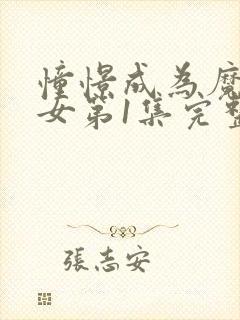 憧憬成為魔
女第1集完整
張志安